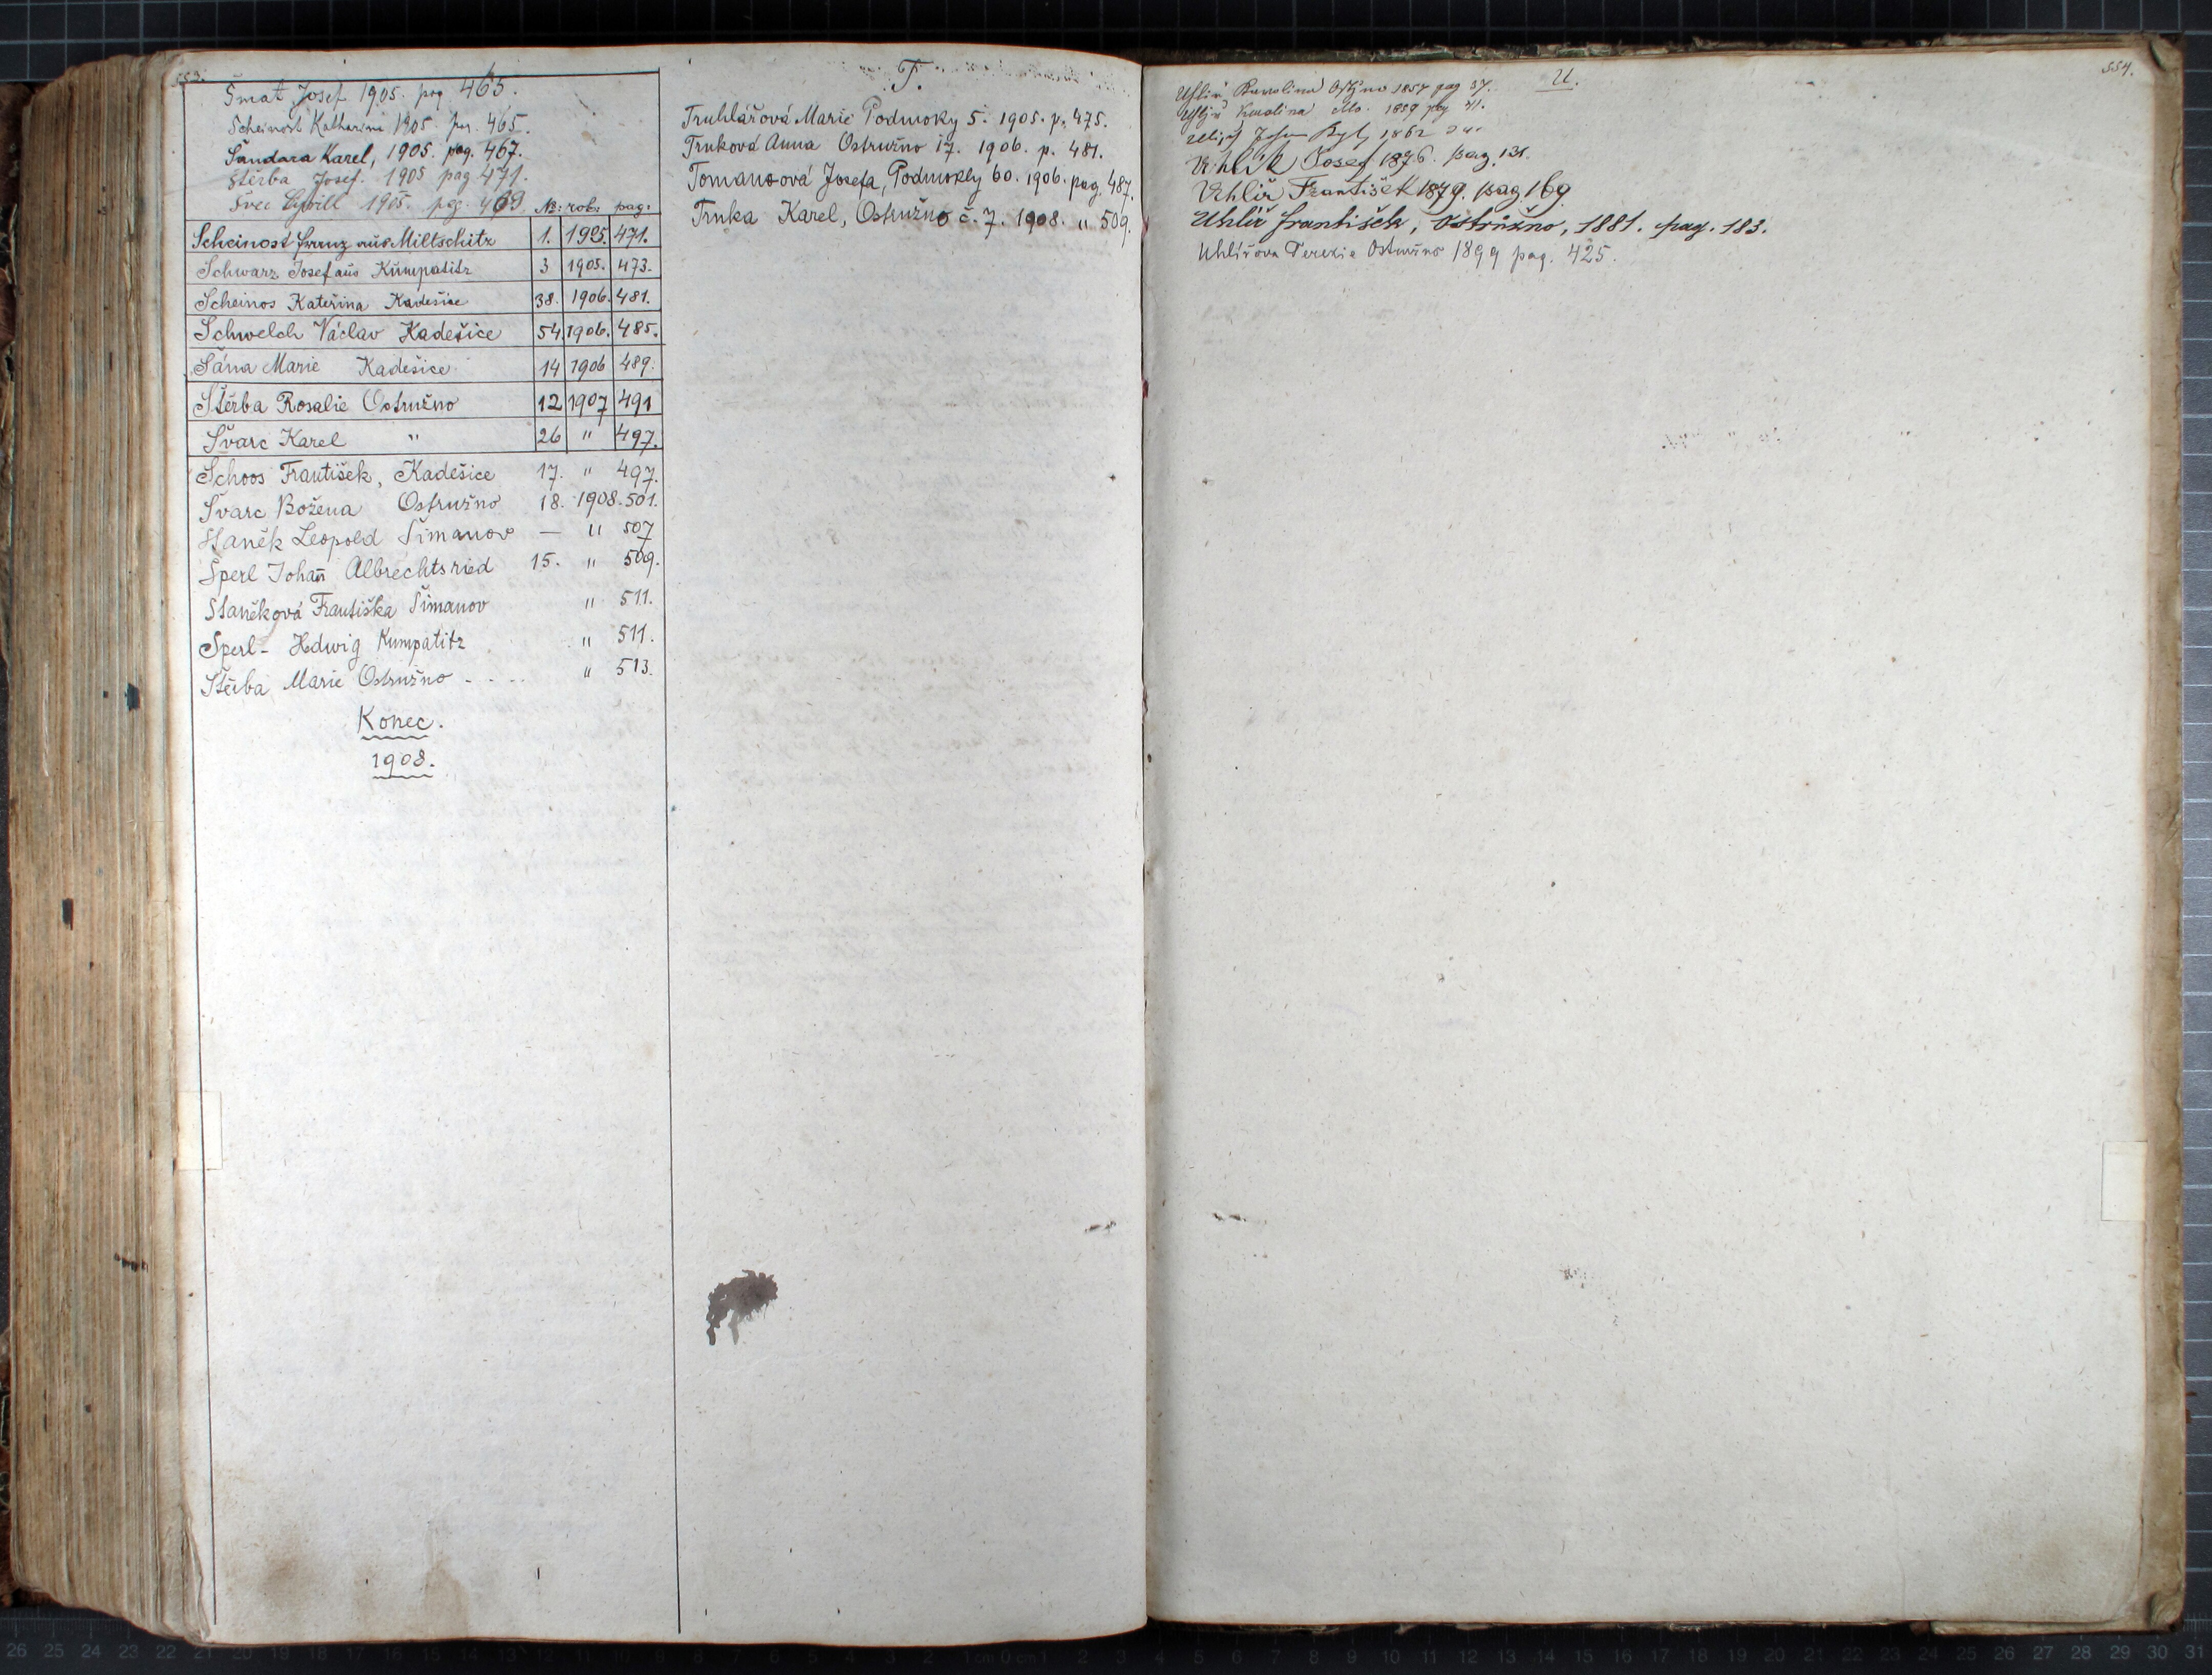 553.
Šmat Josef 1905. pag. 465.
Scheinost Katharina 1905. pag. 465.
Šandara Karel, 1905. pag. 467.
Štěrba Josef. 1905 pag 471.
Švec Cyrill 1905. pag. 469
№: rok: pag:
Scheinost Franz aus Miltschitz 1. 1905. 471.
Schwarz Josef aus Kumpatitz 3 1905. 473.
Scheinos Kateřina Kadešice 38. 1906. 481.
Schwelch Václav Kadešice 54. 1906. 485.
Šána Marie Kadešice 14 1906 489.
Štěrba Rosalie Ostružno 12 1907 491
Švarc Karel " 26 " 497.
Schoos František, Kadešice 17. " 497.
Švarc Božena Ostružno 18. 1908. 501.
Staněk Leopold Šimanov — " 507
Šperl Johañ Albrechtsried 15. " 509.
Staněková Františka Šimanov " 511.
Sperl- Hedwig Kumpatitz " 511.
Štěrba Marie Ostružno - . . . " 513.
Konec.
1908.
T.
Truhlářová Marie Podmoky 5. 1905. p. 475.
Trnková Anna Ostružno 17. 1906. p. 481.
Tomanová Josefa, Podmokly 60. 1906. pag. 487.
Trnka Karel, Ostružno č. 7. 1908. " 509.
554.
U.
Uhliř Karolina 1857 pag 37.
Karolina 1859 pag 41.
1862
Uhlíř Josef 1876. pag. 131.
Uhlíř František 1879. pag. 169.
Uhlíř František, Ostružno, 1881. pag. 183.
Uhlířova Terezie Ostružno 1899 pag. 425.